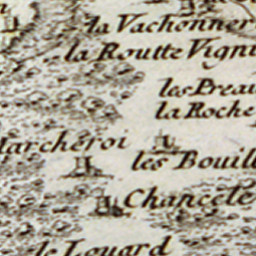 la Vachonner
la Routte Vigni
les Preau
la Roche
Marcheroi
les Bouill
Chancele
le Louard